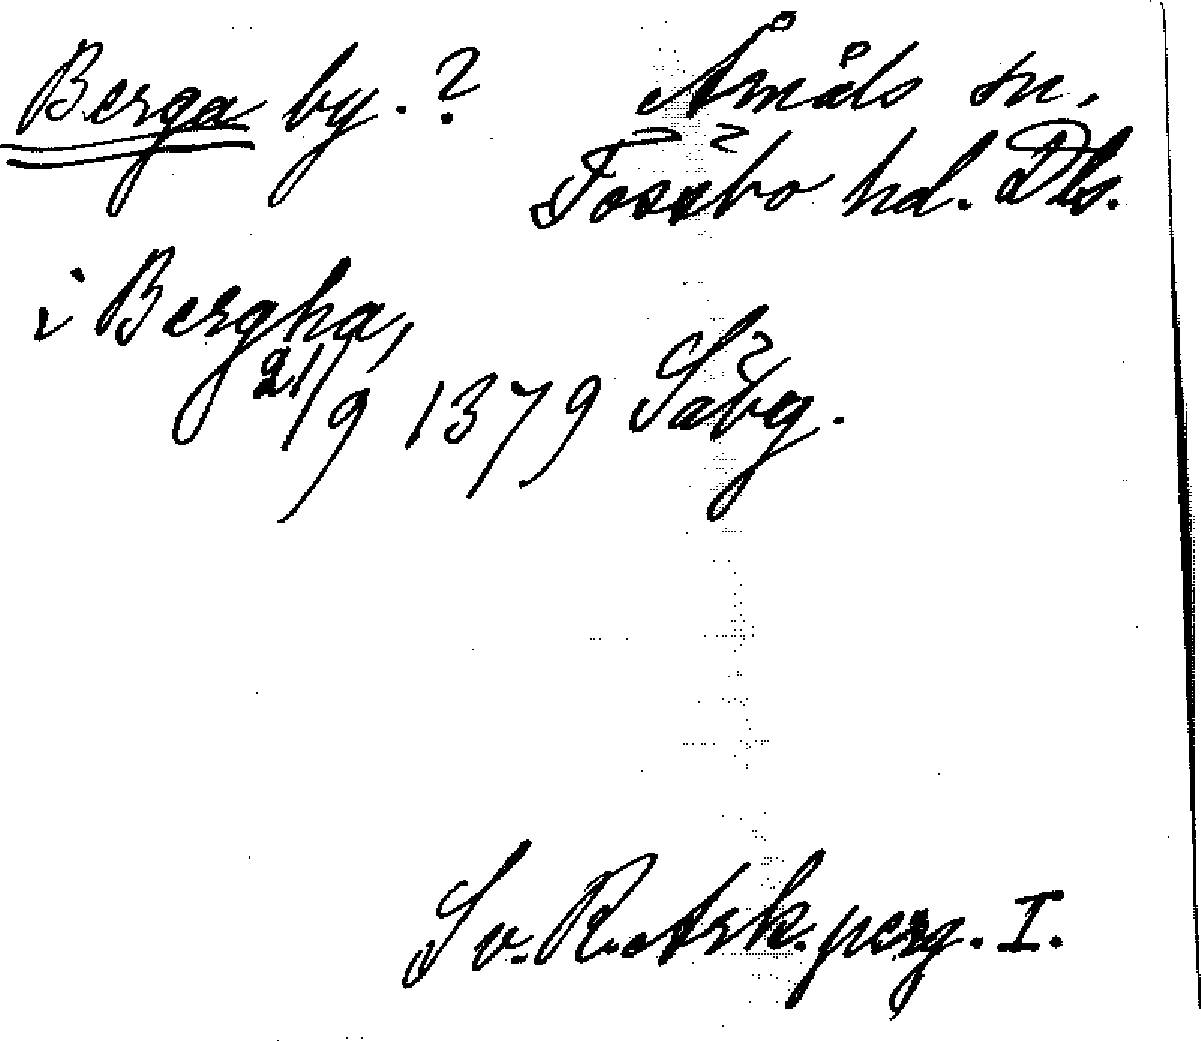 Berga by. ? Åmåls sn.
Tössbo hd. Dls.
i Bergha,
21/9 1379 Säby.
Sv. R. Ark. perg. I.